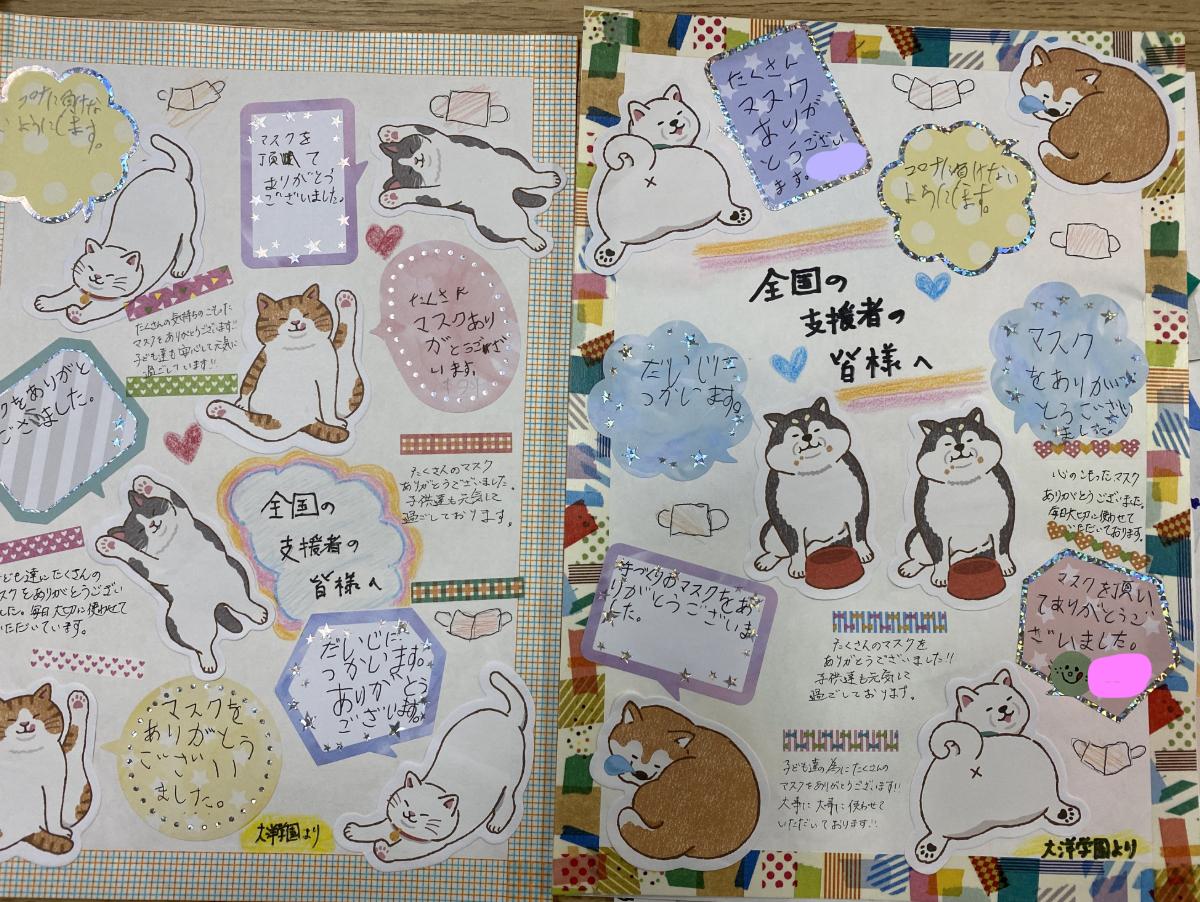 コロナに負けない
ようにします。
マスクを
頂戴して
ありがとう
ございました。
たくさんの気持ちのこもった
マスクをありがとうございます!!
子ども達も安心して元気に
過ごしています!!
たくさん
マスクあり
がとうござ
います。
をありがと
ございました。
たくさんのマスク
ありがとうございました。
子供達も元気に
過ごしております。
全国の
支援者の
皆様へ
ども達にたくさんの
スクをありがとうござい
した。毎日大切に使わせて
いただいています。
だいじに
つかいます。
ありがとう
ございます。
マスクを
ありがとう
ござい
ました。
大洋学園より
たくさん
マスク
ありが
とうござい
ます。
コロナに負けない
ようにします。
全国の
支援者の
皆様へ
だいじに
つかいます。
マスク
をありが
とうござい
ました。
心のこもったマスク
ありがとうございました。
毎日大切に使わせて
いただいております。
手づくりのマスクをあ
りがとうございまし
た。
マスクを頂い
てありがとうご
ざいました。
たくさんのマスクを
ありがとうございました!!
子供達も元気に
過ごしております。
子ども達の為にたくさんの
マスクをありがとうございます!!
大事に大事に使わせて
いただいております!!
大洋学園より